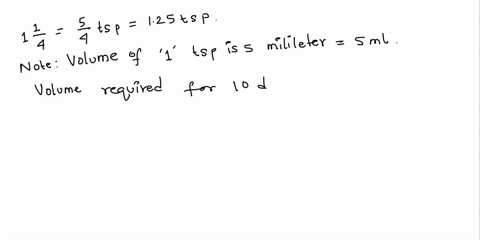 1 1/4 = 5/4 tsp = 1.25 tsp.
Note: Volume of '1' tsp is 5 milileter = 5 ml.
Volume required for 10 d